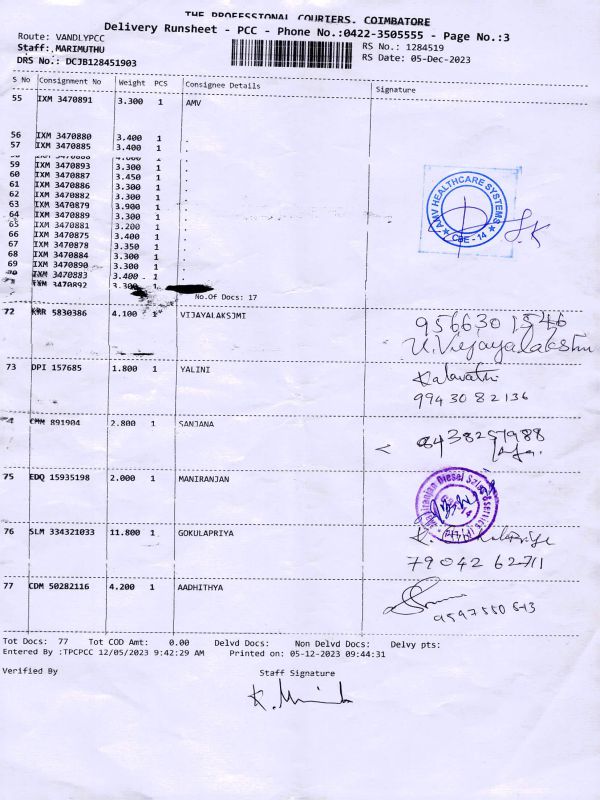 THE PROFESSIONAL COURIERS. COIMBATORE
Delivery Runsheet - PCC - Phone No.:0422-3505555 - Page No.:3
Route: VANDLYPCC
RS No.: 1284519
Staff: MARIMUTHU
RS Date: 05-Dec-2023
DRS No.: DCJB128451903
S No Consignment No Weight PCS Consignee Details Signature
55 IXM 3470891 3.300 1 AMV
56 IXM 3470880 3.400 1 .
57 IXM 3470885 3.400 1 .
58 IXM 1 .
59 IXM 3470893 3.300 1 .
60 IXM 3470887 3.450 1 .
61 IXM 3470886 3.300 1 .
62 IXM 3470882 3.300 1 .
63 IXM 3470879 3.900 1 .
64 IXM 3470889 3.300 1 .
65 IXM 3470881 3.200 1 .
66 IXM 3470875 3.400 1 .
67 IXM 3470878 3.350 1 .
68 IXM 3470884 3.300 1 .
69 IXM 3470890 3.300 1 .
70 IXM 3470883 3.400 1 .
IXM 3470892 3.300 1
No.Of Docs: 17
AMV HEALTHCARE SYSTEMS
★ CBE - 14 ★
J.K
72 KRR 5830386 4.100 1 VIJAYALAKSJMI
9566301546
U.Vijayalakshmi
73 DPI 157685 1.800 1 YALINI
Kalavathi
9943082136
74 CMM 891904 2.800 1 SANJANA
8438257988
75 EDQ 15935198 2.000 1 MANIRANJAN
Diesel Sales & Service
76 SLM 334321033 11.800 1 GOKULAPRIYA
79042 62711
77 CDM 50282116 4.200 1 AADHITHYA
9597550613
Tot Docs: 77 Tot COD Amt: 0.00 Delvd Docs: Non Delvd Docs: Delvy pts:
Entered By :TPCPCC 12/05/2023 9:42:29 AM Printed on: 05-12-2023 09:44:31
Verified By Staff Signature